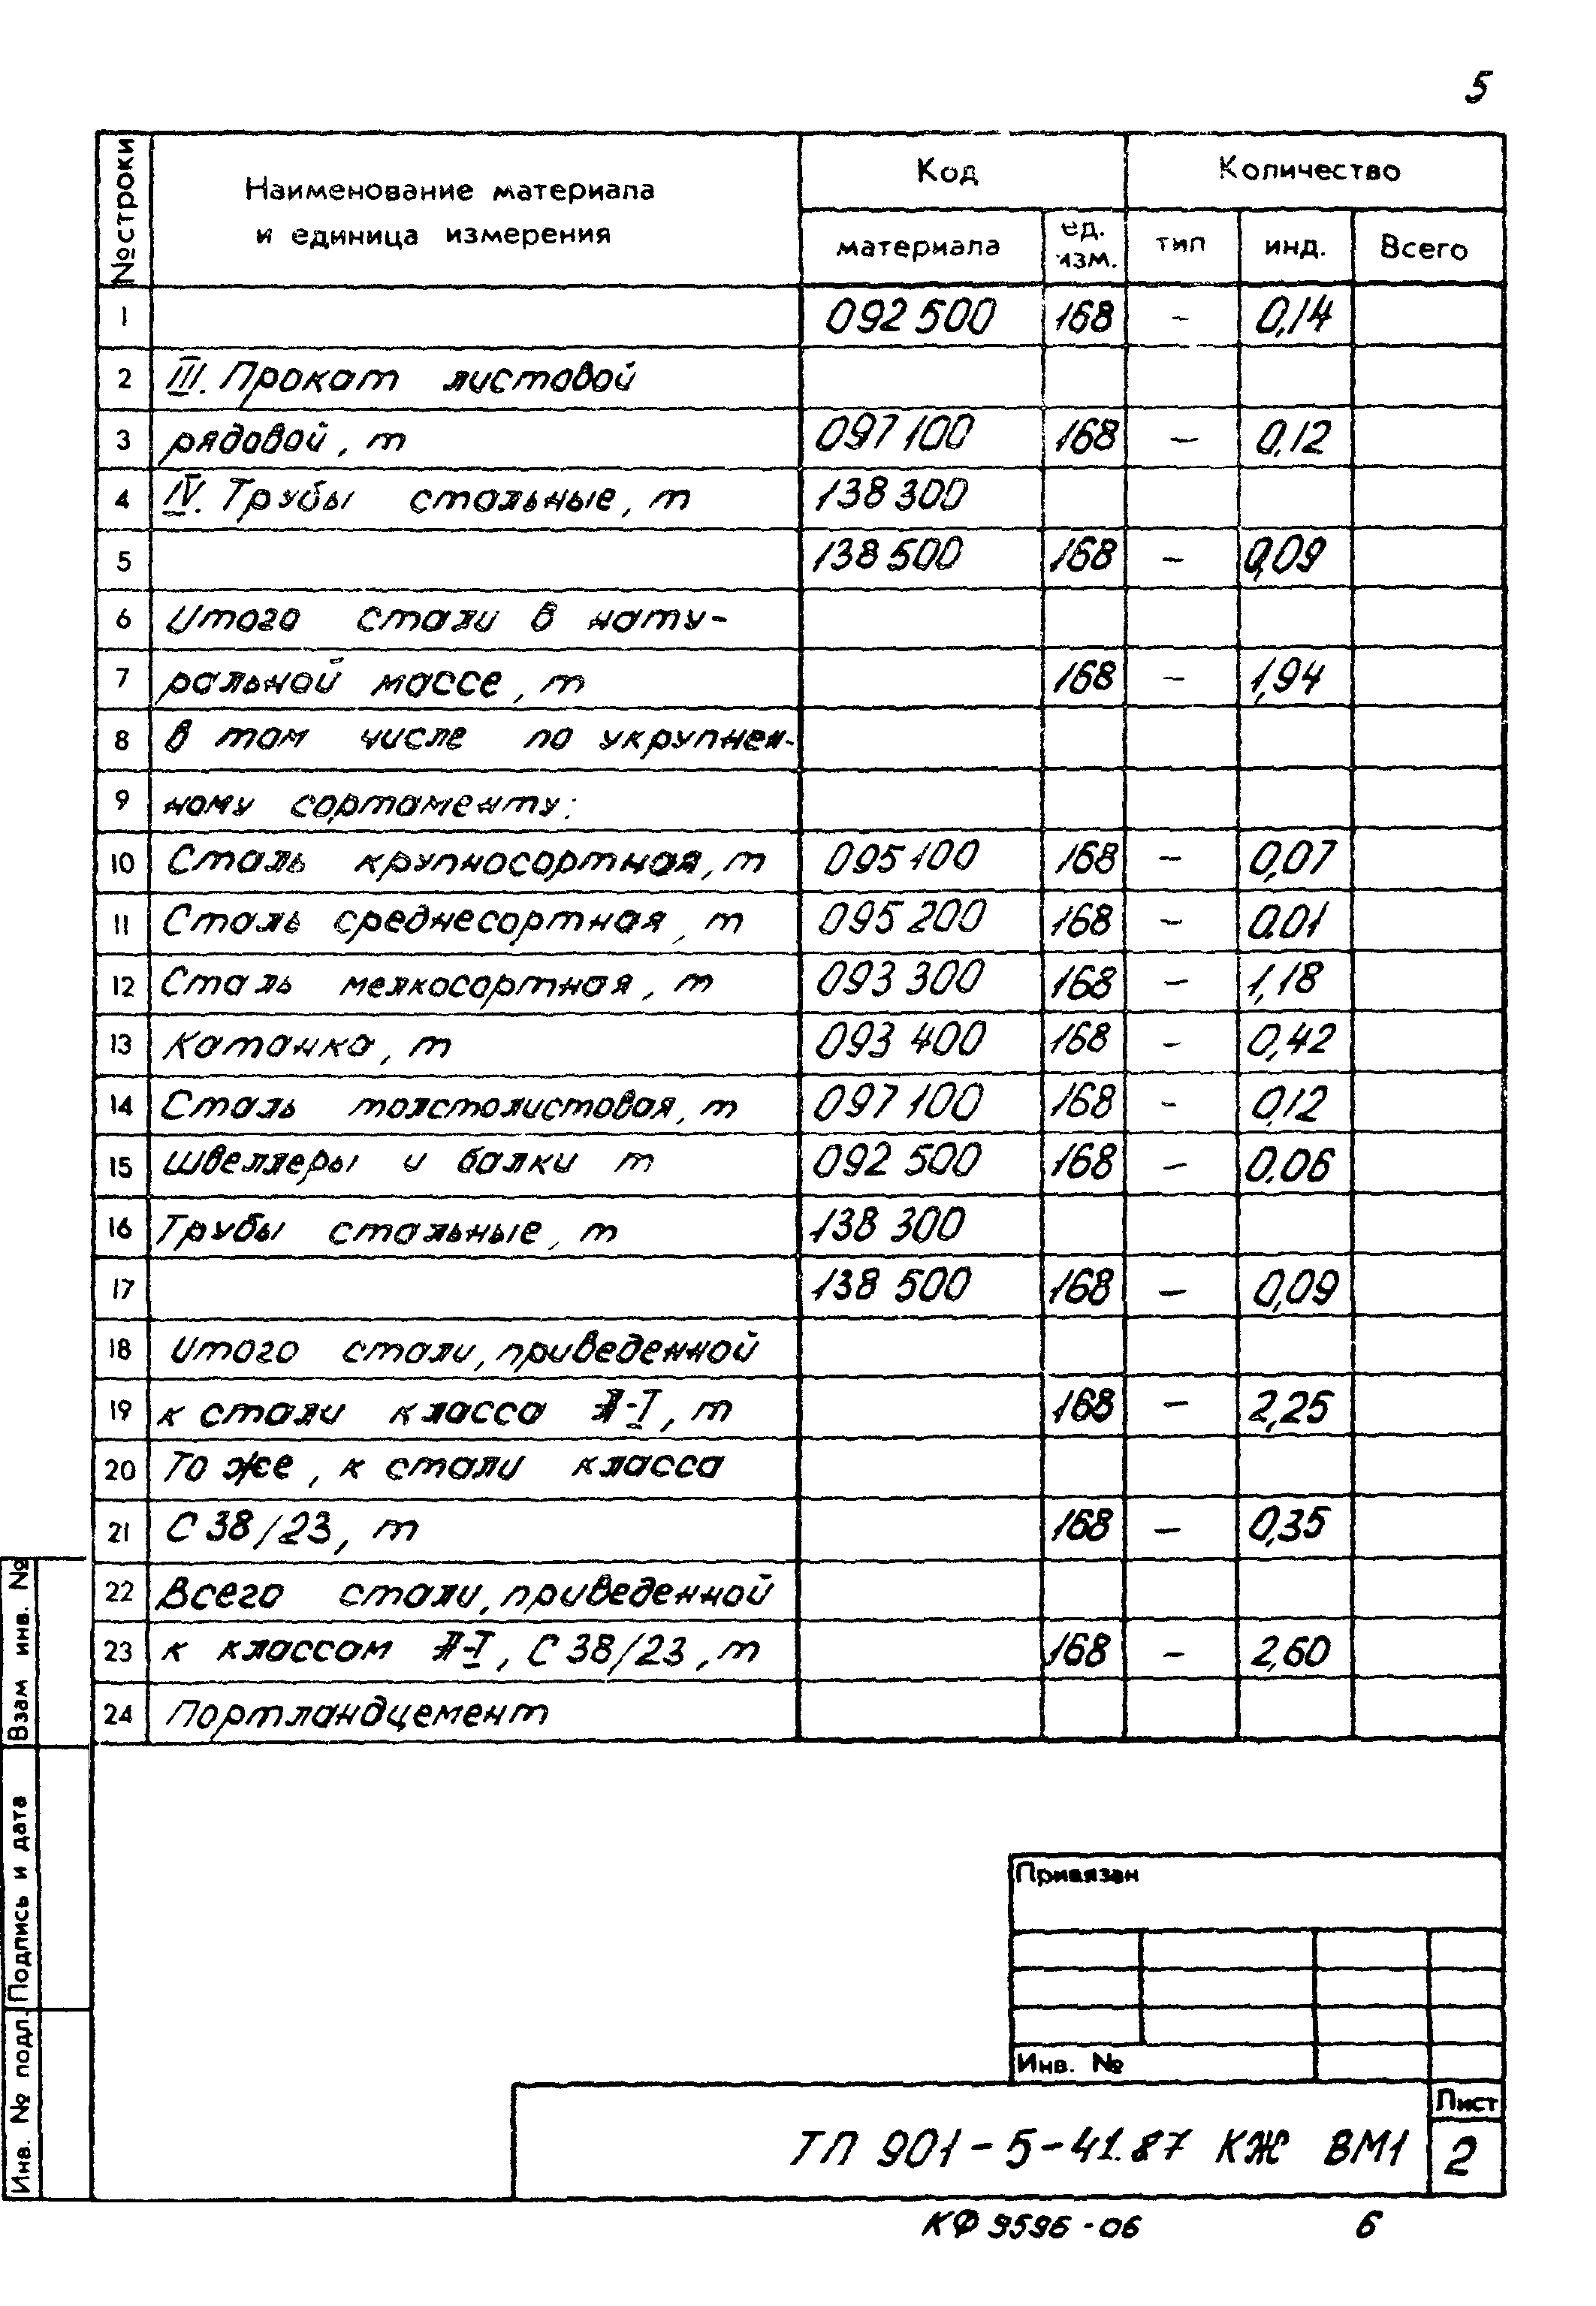 5
№ строки Наименование материала и единица измерения Код Количество
материала ед. изм. тип инд. Всего
1 092 500 168 – 0,14
2 III. Прокат листовой
3 рядовой, т 097 100 168 – 0,12
4 IV. Трубы стальные, т 138 300
5 138 500 168 – 0,09
6 Итого стали в нату-
7 ральной массе, т 168 – 1,94
8 в том числе по укрупнен-
9 ному сортаменту:
10 Сталь крупносортная, т 095 100 168 – 0,07
11 Сталь среднесортная, т 095 200 168 – 0.01
12 Сталь мелкосортная, т 093 300 168 – 1,18
13 Катанка, т 093 400 168 – 0,42
14 Сталь толстолистовая, т 097 100 168 – 0,12
15 Швеллеры и балки т 092 500 168 – 0.06
16 Трубы стальные, т 138 300
17 138 500 168 – 0,09
18 Итого стали, приведенной
19 к стали класса А-I, т 168 – 2,25
20 То же, к стали класса
21 С 38/23, т 168 – 0,35
22 Всего стали, приведенной
23 к классам А-I, С 38/23, т 168 – 2,60
24 Портландцемент
Взам инв. №
Подпись и дата
Инв. № подл.
Привязан
Инв. №
Лист
ТП 901-5-41.87 КЖ ВМ1 2
КФ 9596-06 6